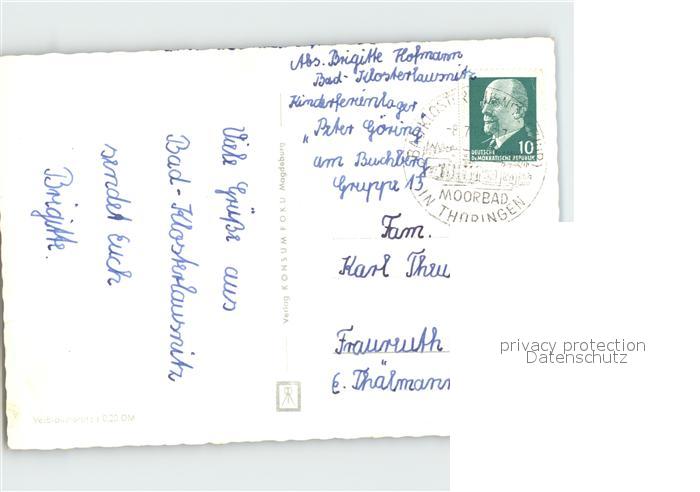 Abs. Brigitte Hofmann
Bad-Klosterlausnitz
Kinderferienlager
"Peter Göring"
am Buchberg
Gruppe 13
DEUTSCHE
DEMOKRATISCHE REPUBLIK
10
MOORBAD
IN THÜRINGEN
Fam.
Karl Theu
Fraureuth
E. Thälmann
Viele Grüße aus
Bad-Klosterlausnitz
sendet Euch
Brigitte.
Verlag KONSUM FOKU Magdeburg
0,20 DM
privacy protection
Datenschutz